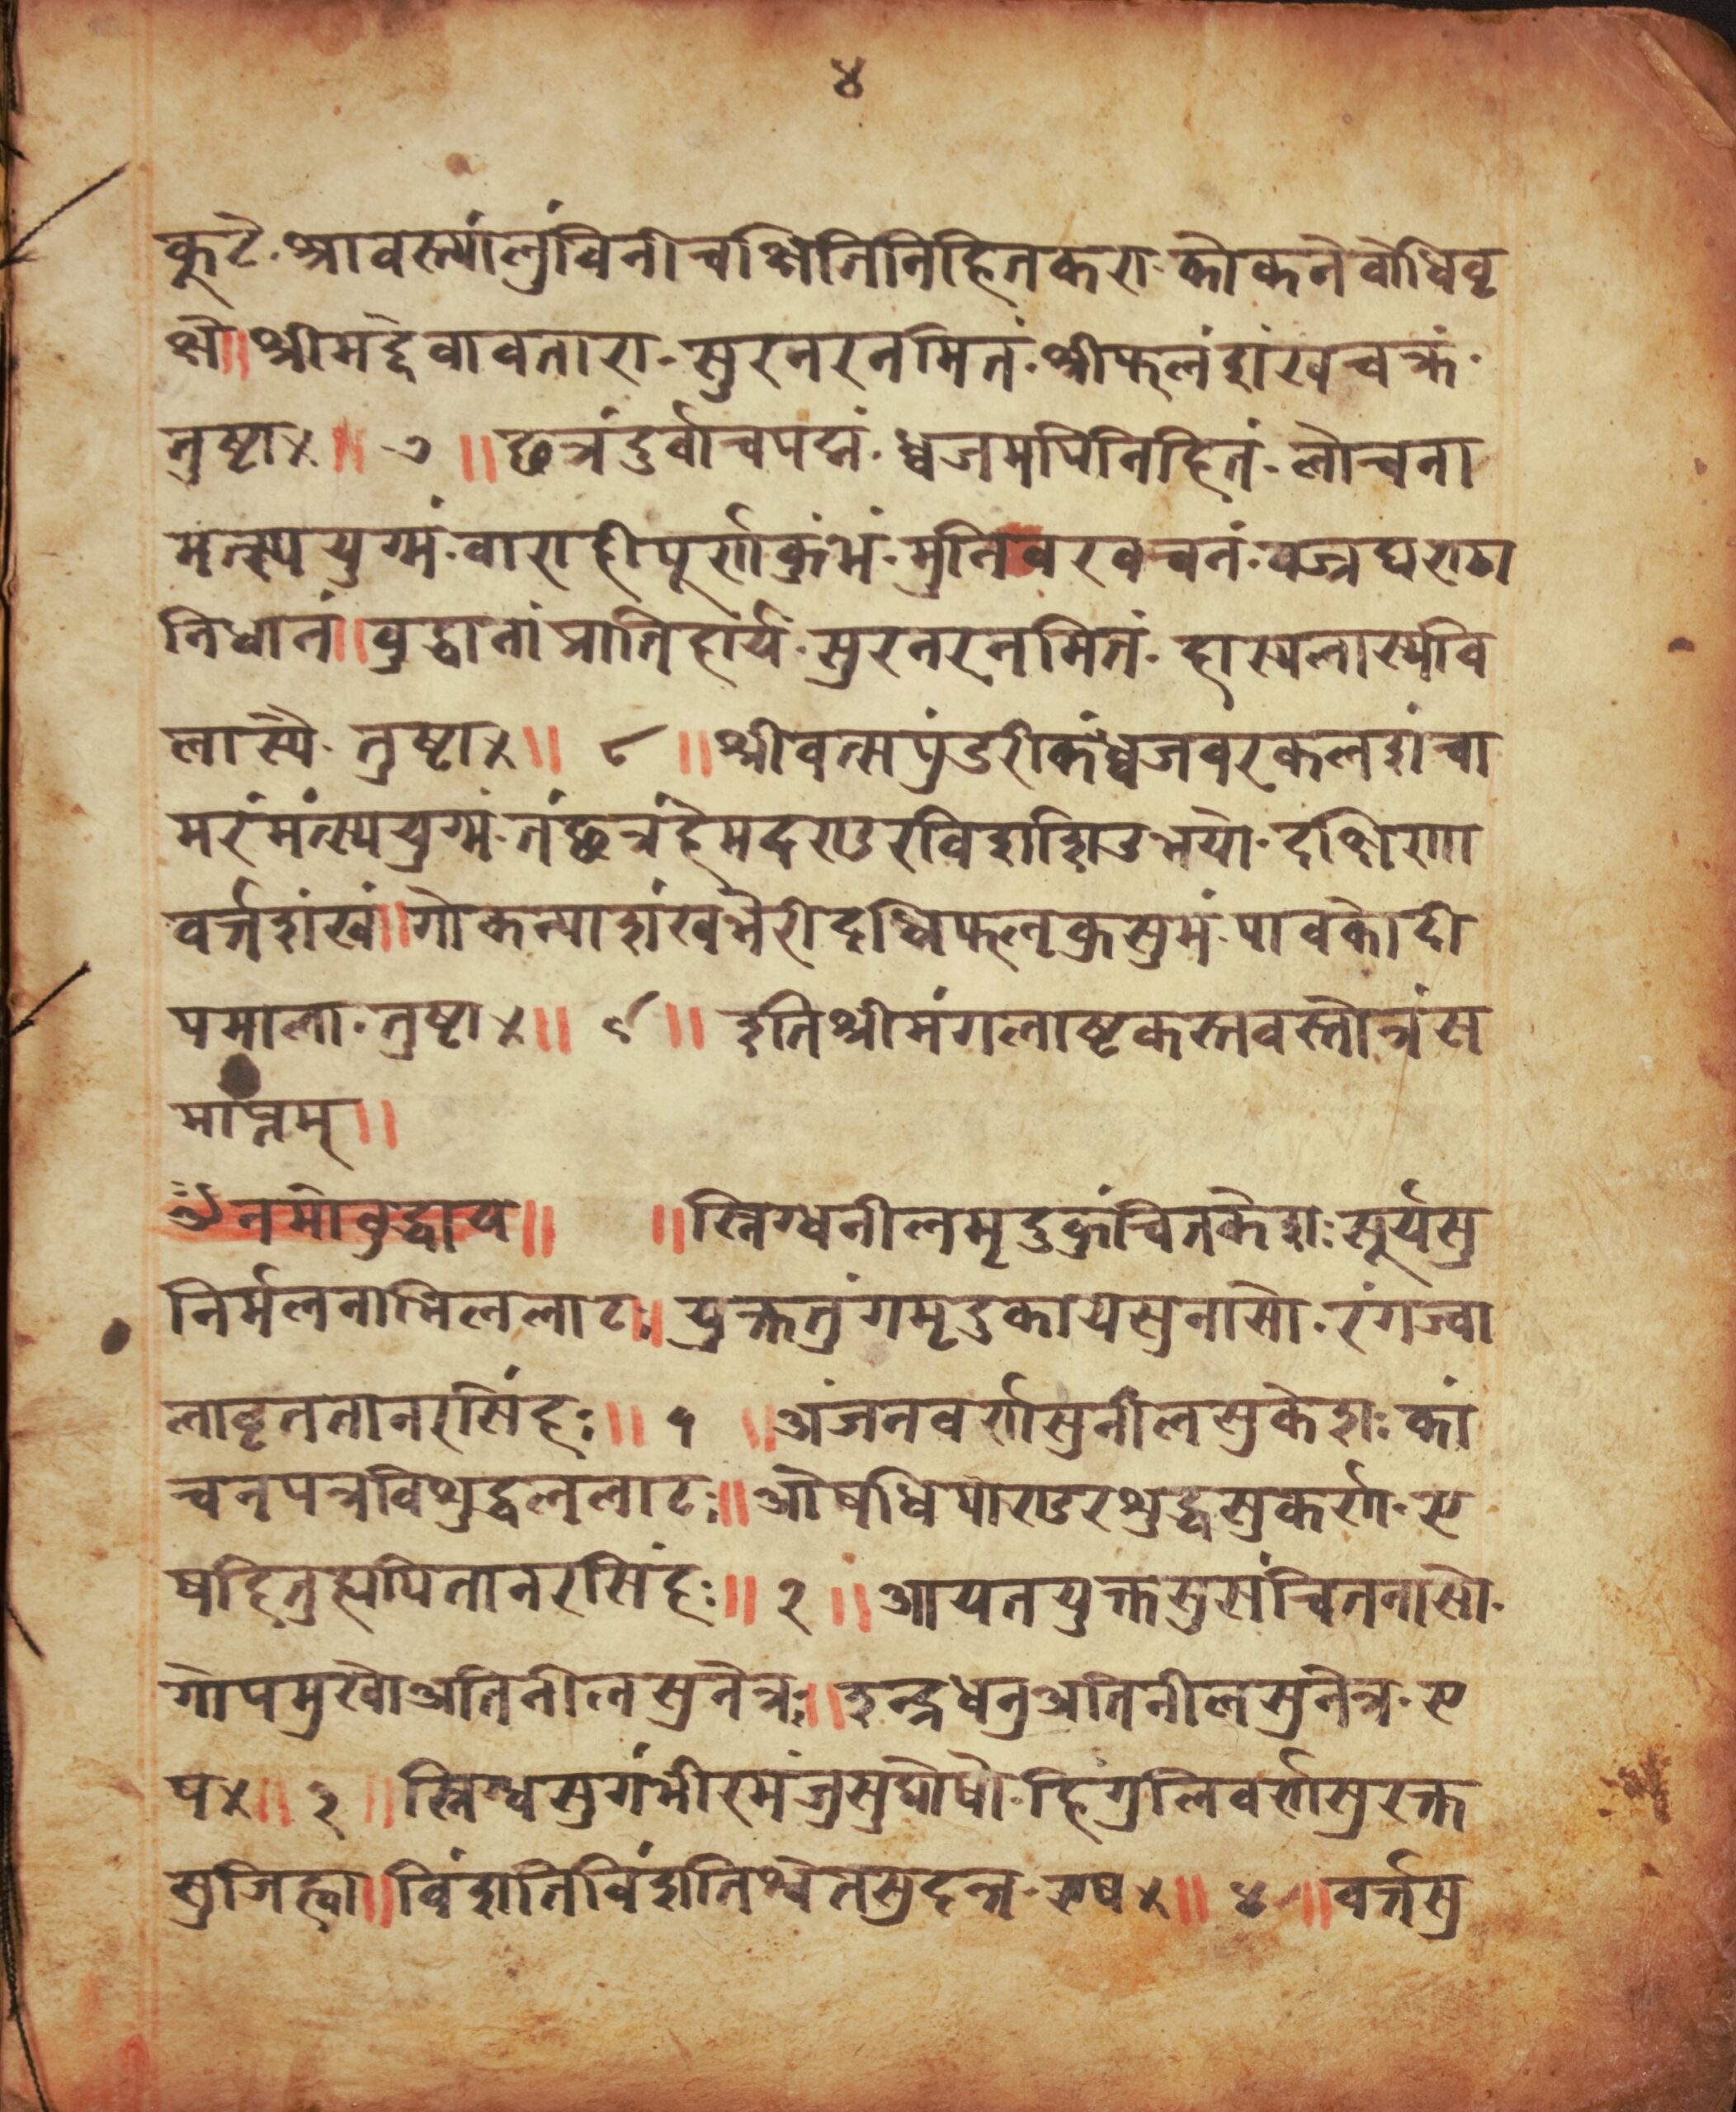 ४
कूटे·श्रावस्त्यांलुंविनीचक्षितिनिहितकरा·कोकनेवोधिवृ
क्षे॥श्रीमद्देवावतारा·सुरनरनमितं·श्रीफलंशंखचक्रं·
तुष्टा४॥ ७ ॥छत्रंदुर्वाचपद्मं·ध्वजमपिनिहितं·लोचना
मत्स्ययुग्मं·वाराहीपूर्णकुंभं·मुनिवरवचनं·वज्रघराठा
निधानं॥वुद्धानांप्रातिहार्यं·सुरनरनमितं·हास्यलास्यवि
लास्यै·तुष्टा४॥ ८ ॥श्रीवत्सपुंडरीकंध्वजवरकलशंचा
मरंमंत्स्ययुग्मं·तंछत्रंहेमदराडरविशशिउभयो·दक्षिणा
वर्त्तशंखं॥गोकन्याशंखभेरीदधिफलकुसुमं·पावकोदी
पमाला·तुष्टा४॥ ९ ॥ इतिश्रीमंगलाष्टकस्तवस्तोत्रंस
माप्तम्॥
ॐनमोवुद्धाय॥ ॥स्निग्धनीलमृदुकुंचितकेशः सूर्यसु
निर्मलनाभिललाटः॥युक्ततुंगमृदुकायसुनासो·रंगज्वा
लावृततानरसिंहः॥ १ ॥अंजनवर्णसुनीलसुकेशः कां
चनपत्रविशुद्धललाटः॥ओषधिपाराडरशुद्धसुकर्ण·ए
षहितुह्यपितानरसिंहः॥ २ ॥आयतयुक्तसुसंचितनासो·
गोपमुखोअतिनीलसुनेत्रः॥इन्द्रधनुअतिनीलसुनेत्र·ए
ष४॥ ३ ॥स्निग्धसुगंभीरमंजुसुघोषो·हिंगुलिवर्णसुरक्त
सुजिह्वा॥विंशतिविंशतिश्वेतसुदन्त·एष४॥ ४ ॥वर्त्तसु